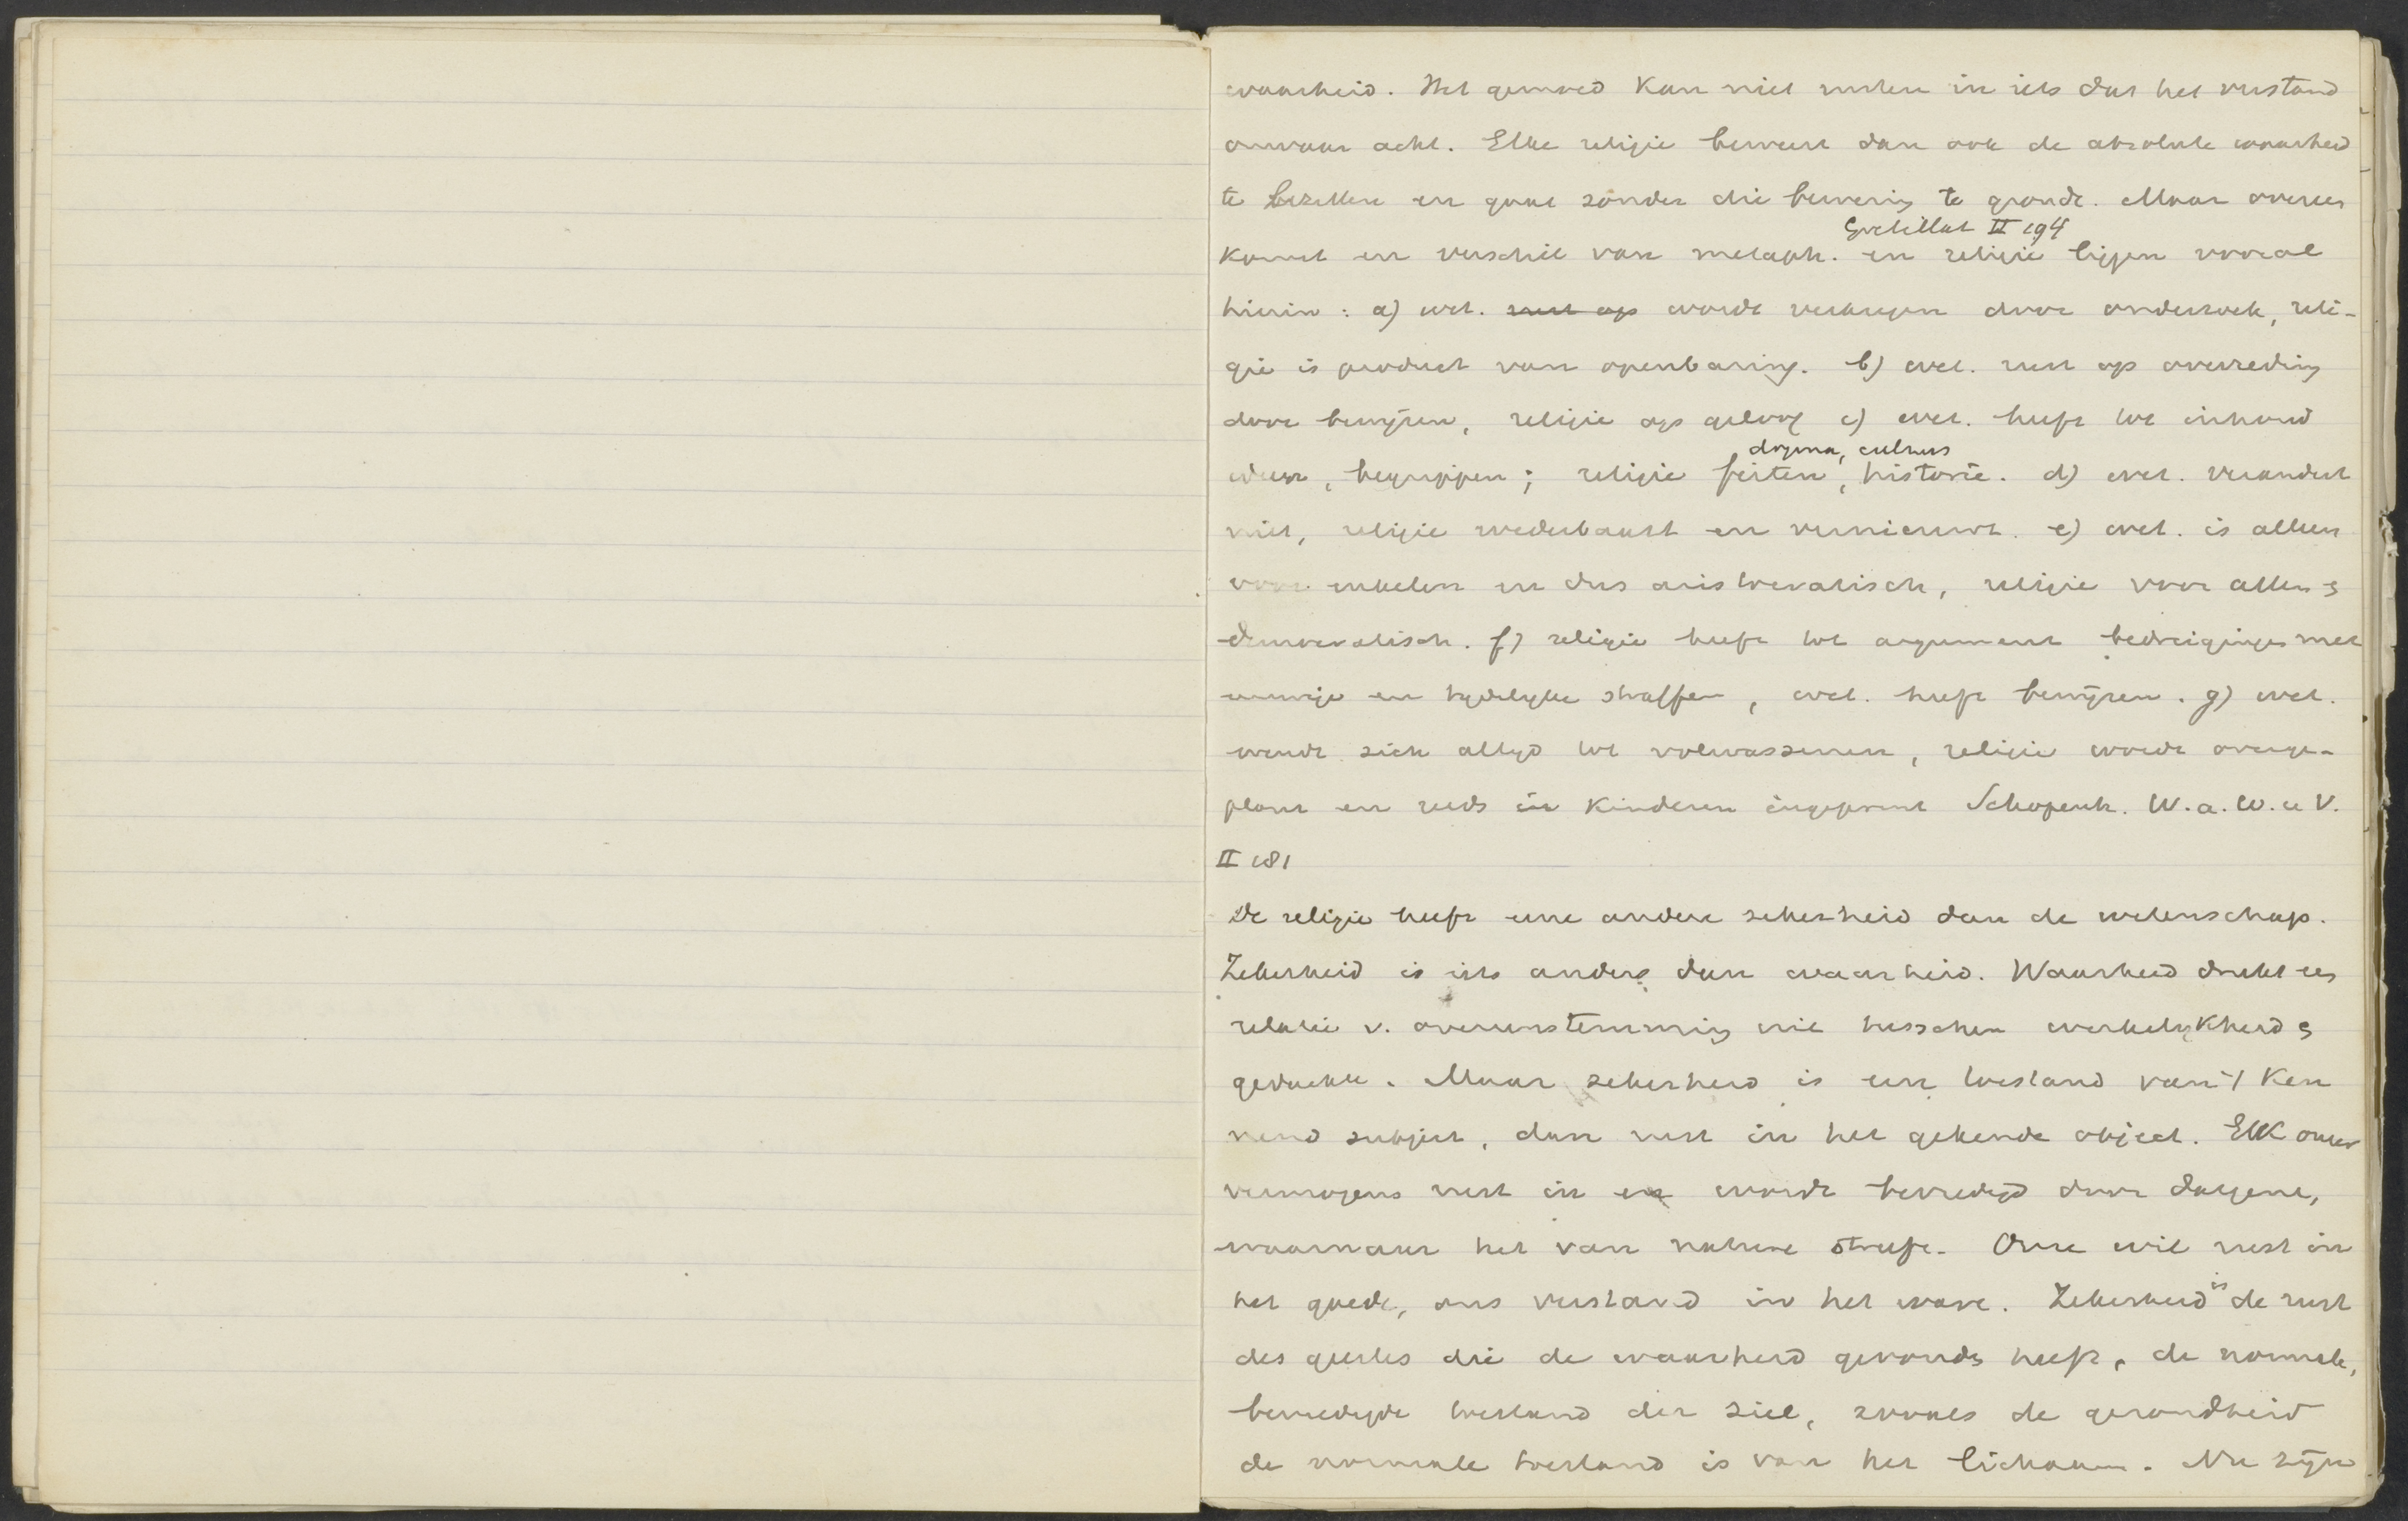 waarheid. Het gemoed kan niet rusten in iets dat het verstand
onwaar acht. Elke religie beweert dan ook de absolute waarheid
te bezitten en gaat zonder die bewering te gronde. Maar overeen
II 194
komst en verschil van metaph. en religie liggen vooral
hierin: a) wet. rust op wordt verkregen door onderzoek, reli-
gie is product van openbaring. b) wet. rust op overreding
door bewijzen, religie op geloof c) wet. heeft tot inhoud
dogma, cultus
ideen, begrippen; religie feiten, historie. d) wet. verandert
niet, religie wederbaart en vernieuwt. e) wet. is alleen
voor enkelen en dus aristocratisch, religie voor allen &
democratisch. f) religie heeft tot argument bedreigingen met
eeuwige en tijdelijke straffen, wet. heeft bewijzen. g) wet.
wendt zich altijd tot volwassenen, religie wordt overge-
plant en reeds in kinderen ingeprent Schopenh. W. a. W. u V.
II 181
De religie heeft eene andere zekerheid dan de wetenschap.
Zekerheid is iets anders dan waarheid. Waarheid drukt een
relatie v. overeenstemming uit tusschen werkelijkheid &
gedachte. Maar zekerheid is een toestand van 't ken
nend subject, dan rust in het gekende object. Elk onzer
vermogens rust in en wordt bevredigd door datgene,
waarnaar het van nature streeft. Onze wil rust in
het goede, ons verstand in het ware. Zekerheid is de rust
des geestes die de waarheid gevonden heeft, de normale,
bevredigde toestand der ziel, zooals de gezondheid
de normale toestand is van het lichaam. Nu zijn